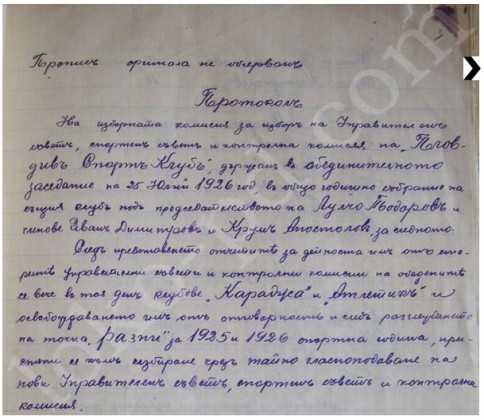 Препис оригинала не облерван
Протоколъ
На изборната комисия за изборъ на Управителенъ
съветъ, спортенъ съветъ и контролна комисия на „Плов-
дивъ Спортъ Клубъ", държанъ въ обединителното
заседание на 25 Юлий 1926 год, въ общо годишно събрание на
същия клубъ подъ председателството на Лулчо Тодоровъ и
членове Иванъ Димитровъ и Крумъ Апостоловъ за следното.
Следъ прочитането отчетите за дейноста имъ отъ ста-
рите управителни съвети и контролни комисии на обединените
се вече въ тоя день клубове „Караджа" и „Атлетикъ" и
освобождаването имъ отъ отговорность и следъ разглеждането
на точка „разни" за 1925 и 1926 спортна година, при-
стъпи се къмъ избиране чрезъ тайно гласоподаване на
нови Управителенъ съветъ, спортенъ съветъ и контролна
комисия.